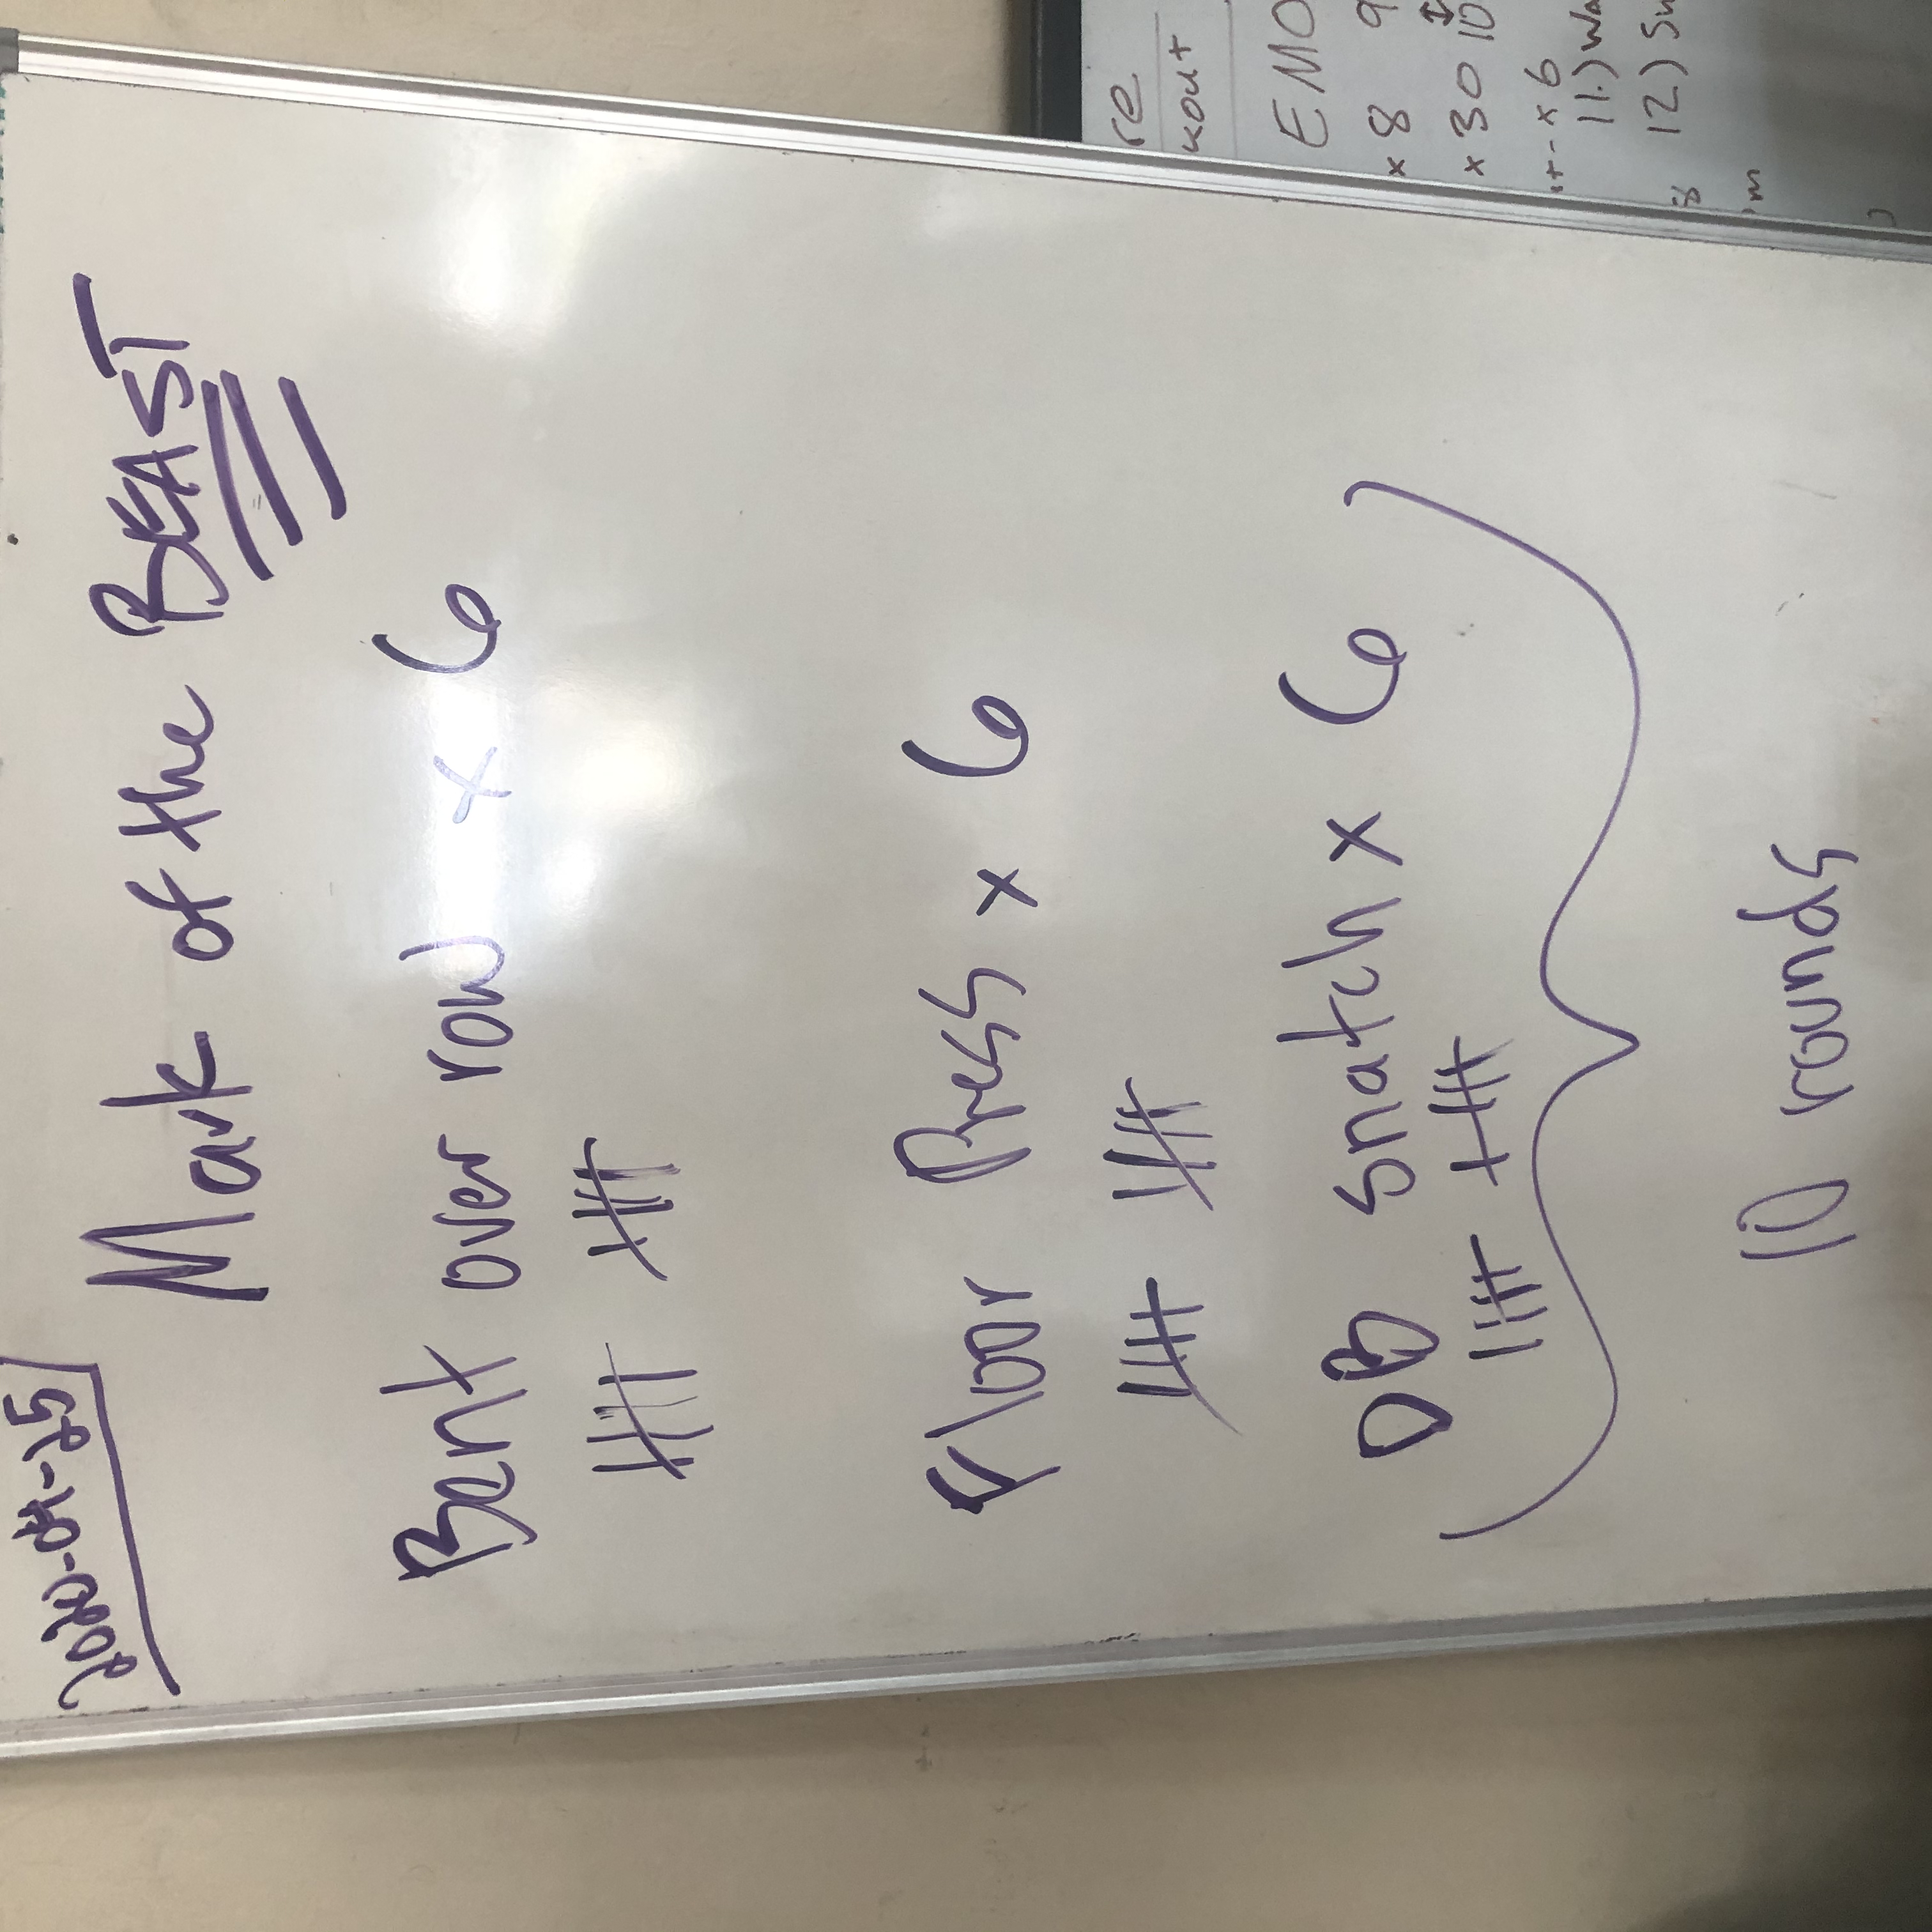 2020-04-25
Mark of the BEAST
Bent over row x 6
Floor Press x 6
DB snatch x 6
10 rounds
re
kout
EMO
x 8 9
x 30 10
x 6
11.) Wa
12) Su
8
m